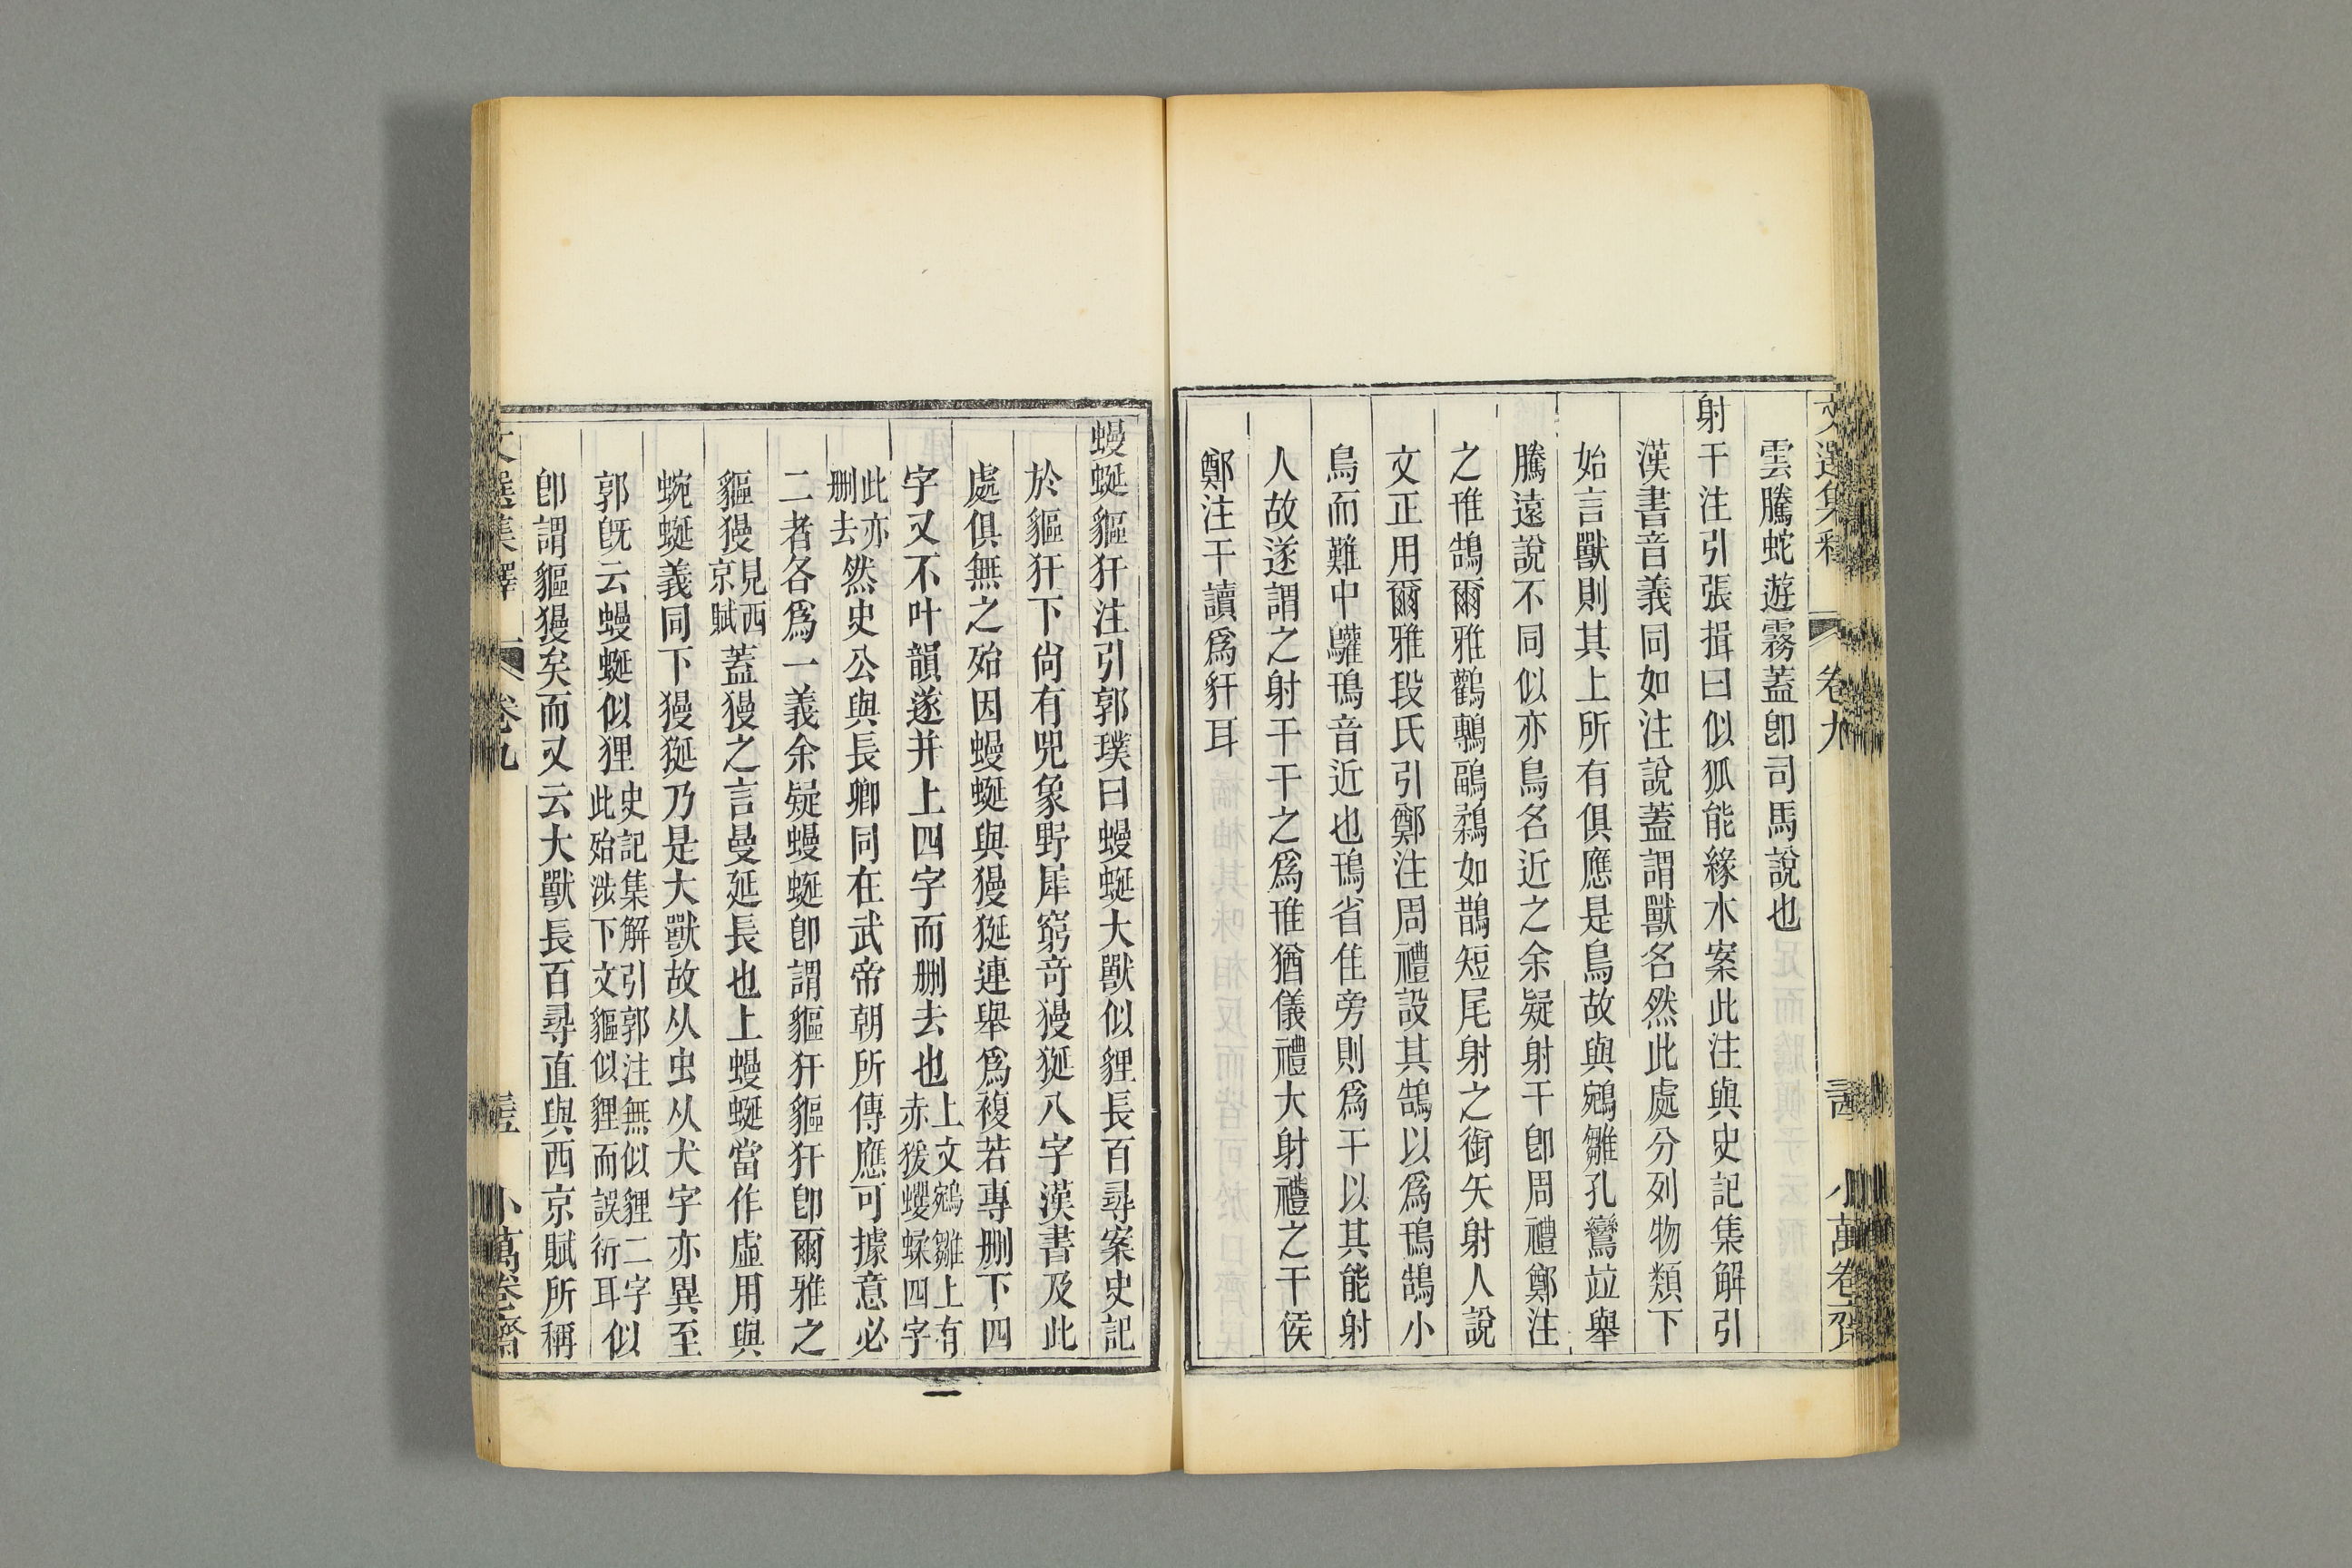 文選集釋 卷九 小萬卷齋
雲騰蛇遊霧蓋卽司馬說也
射干注引張揖曰似狐能緣木案此注與史記集解引
漢書音義同如注說蓋謂獸名然此處分列物類下
始言獸則其上所有俱應是鳥故與鵷雛孔鸞竝舉
騰遠說不同似亦鳥名近之余疑射干卽周禮鄭注
之鳱鵠爾雅鸛鷒鶝鶔如鵲短尾射之銜矢射人說
文正用爾雅段氏引鄭注周禮設其鵠以爲鳱鵠小
鳥而難中鸛鳱音近也鳱省隹旁則爲干以其能射
人故遂謂之射干干之爲鳱猶儀禮大射禮之干侯
鄭注干讀爲豻耳
蟃蜒貙犴注引郭璞曰蟃蜒大獸似貍長百尋案史記
於貙犴下尙有兕象野犀窮奇獌狿八字漢書及此
處俱無之殆因蟃蜒與獌狿連舉爲複若專刪下四
字又不叶韻遂并上四字而刪去也上文鵷雛上有
赤猨蠷蝚四字
此亦
刪去然史公與長卿同在武帝朝所傳應可據意必
二者各爲一義余疑蟃蜒卽謂貙犴貙犴卽爾雅之
貙獌見西
京賦蓋獌之言曼延長也上蟃蜒當作虛用與
蜿蜒義同下獌狿乃是大獸故从虫从犬字亦異至
郭旣云蟃蜒似狸史記集解引郭注無似貍二字似
此殆涉下文貙似貍而誤衍耳
卽謂貙獌矣而又云大獸長百尋直與西京賦所稱
文選集釋 卷九 小萬卷齋